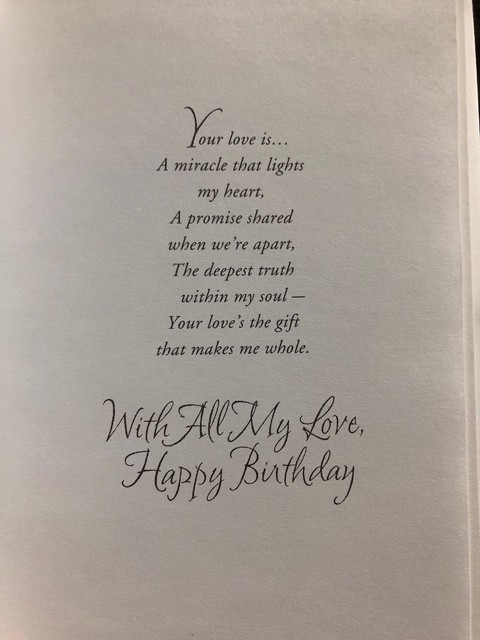 Your love is...
A miracle that lights
my heart,
A promise shared
when we're apart,
The deepest truth
within my soul —
Your love's the gift
that makes me whole.
With All My Love,
Happy Birthday